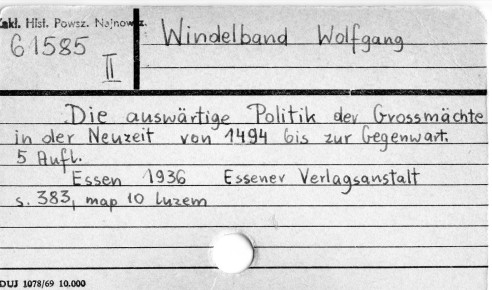 Zakł. Hist. Powsz. Najnowsz.
61585
II
Windelband Wolfgang
Die auswärtige Politik der Grossmächte
in der Neuzeit von 1494 bis zur Gegenwart.
5 Aufl.
Essen 1936 Essener Verlagsanstalt
s. 383, map 10 luzem
DUJ 1078/69 10.000